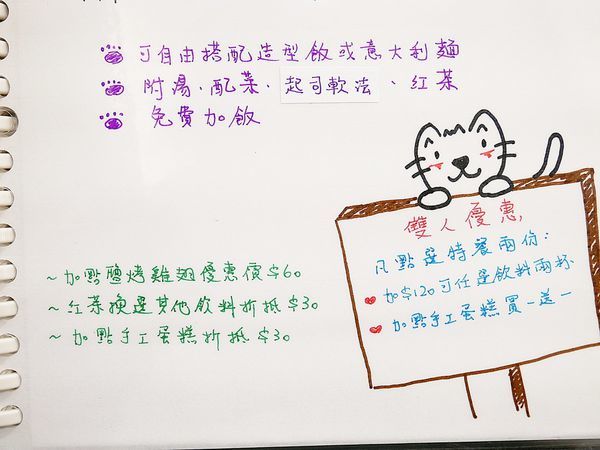 可自由搭配造型飯或意大利麵
附湯、配菜、起司軟法、紅茶
免費加飯
雙人優惠
凡點選特餐兩份:
加$120可任選飲料兩杯
加點手工蛋糕買一送一
~加點鹽烤雞翅優惠價$60
~紅茶換選其他飲料折抵$30
~加點手工蛋糕折抵$30